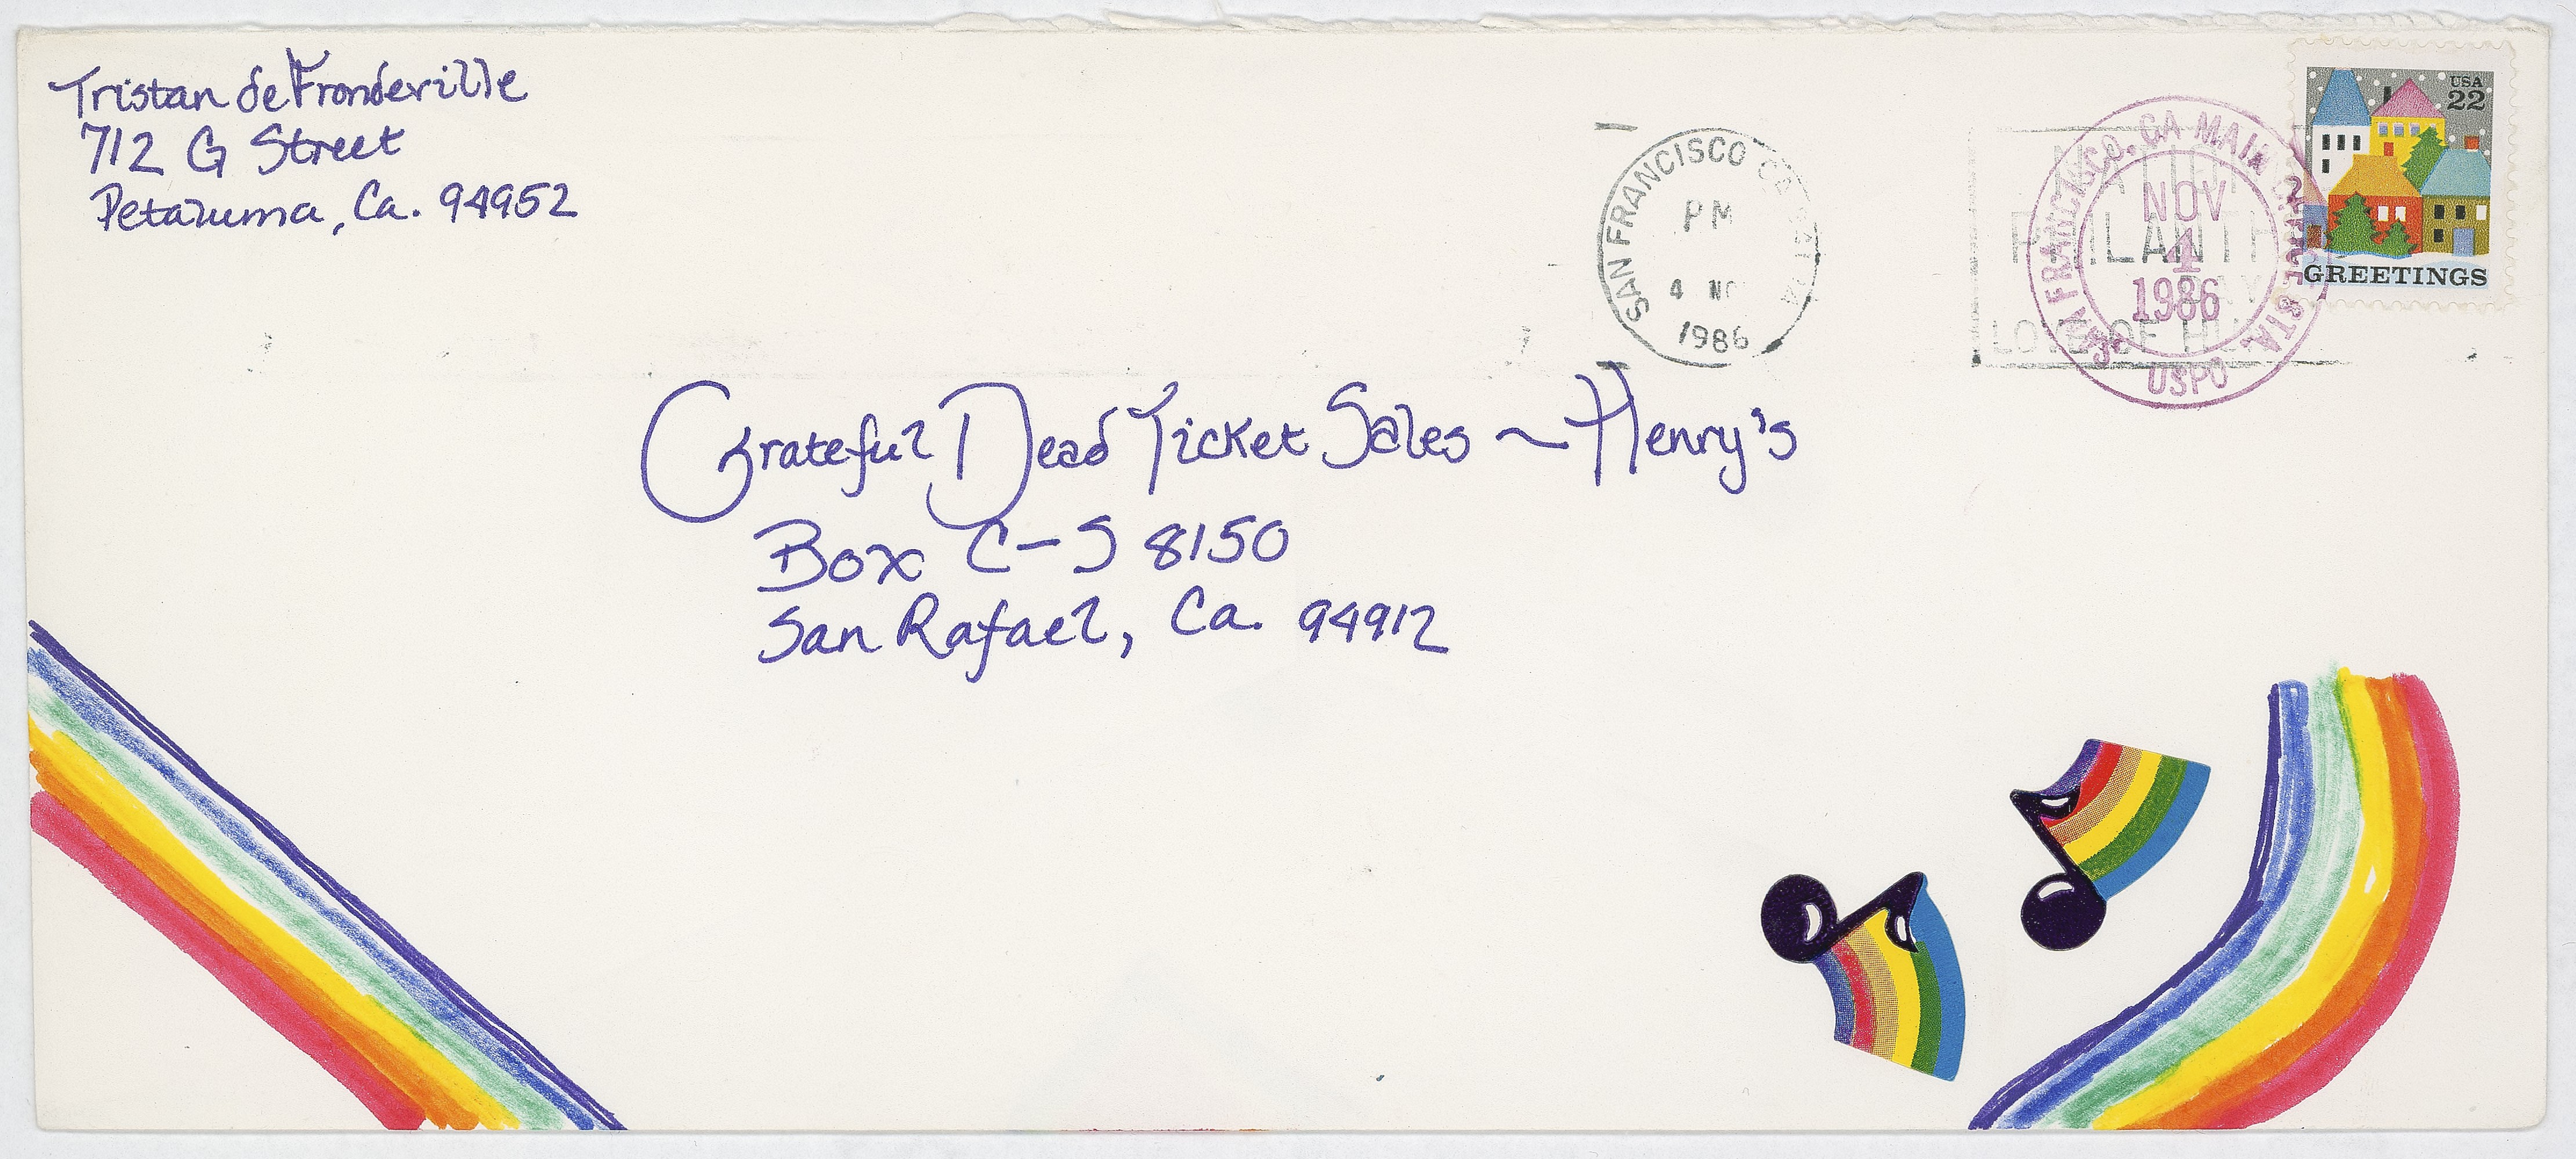 Tristan de Frondeville
712 G Street
Petaluma, Ca. 94952
SAN FRANCISCO
PM
4 NO
1986
SAN FRANCISCO, CA MAIN OFFICE STA.
NOV
4
1986
USPO
PHILANTH
LOVE OF HU
USA
22
GREETINGS
Grateful Dead Ticket Sales ~ Henry's
Box C-S 8150
San Rafael, Ca. 94912